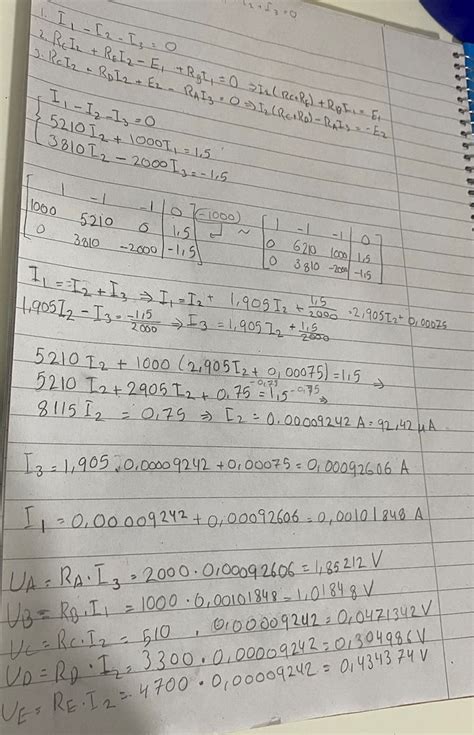 1. I₁ - I₂ - I₃ = 0
2. R_C I₂ + R_E I₂ - E₁ + R_B I₁ = 0 ⇒ I₂(R_C+R_E) + R_B I₁ = E₁
3. R_C I₂ + R_D I₂ + E₂ - R_A I₃ = 0 ⇒ I₂(R_C+R_D) - R_A I₃ = -E₂
I₁ - I₂ - I₃ = 0
5210 I₂ + 1000 I₁ = 1,5
3810 I₂ - 2000 I₃ = -1,5
1 -1 -1 | 0 1 -1 -1 | 0
1000 5210 0 | 1,5 (-1000) ~ 0 6210 1000 | 1,5
0 3810 -2000 | -1,5 0 3810 -2000 | -1,5
I₁ = I₂ + I₃ ⇒ I₁ = I₂ + 1,905 I₂ + 1,5/2000 = 2,905 I₂ + 0,00075
1,905 I₂ - I₃ = -1,5/2000 ⇒ I₃ = 1,905 I₂ + 1,5/2000
5210 I₂ + 1000 (2,905 I₂ + 0,00075) = 1,5 ⇒
5210 I₂ + 2905 I₂ + 0,75 -0,75 = 1,5 -0,75 ⇒
8115 I₂ = 0,75 ⇒ I₂ = 0,00009242 A = 92,42 μA
I₃ = 1,905 · 0,00009242 + 0,00075 = 0,00092606 A
I₁ = 0,00009242 + 0,00092606 = 0,00101848 A
U_A = R_A · I₃ = 2000 · 0,00092606 = 1,85212 V
U_B = R_B · I₁ = 1000 · 0,00101848 = 1,01848 V
U_C = R_C · I₂ = 510 · 0,00009242 = 0,0471342 V
U_D = R_D · I₂ = 3300 · 0,00009242 = 0,304986 V
U_E = R_E · I₂ = 4700 · 0,00009242 = 0,434374 V